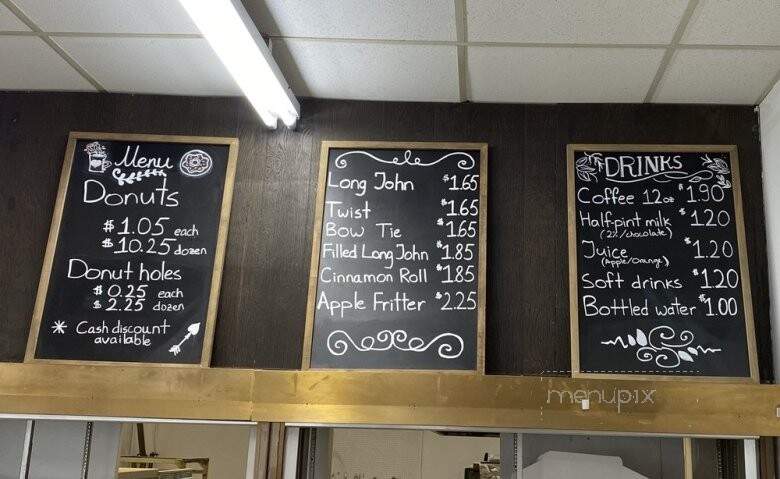 Menu
Donuts
$1.05 each
$10.25 dozen
Donut holes
$0.25 each
$2.25 dozen
* Cash discount
available
Long John $1.65
Twist $1.65
Bow Tie $1.65
Filled Long John $1.85
Cinnamon Roll $1.85
Apple Fritter $2.25
DRINKS
Coffee 12oz $1.90
Half-pint milk $1.20
(2%/chocolate)
Juice $1.20
(Apple/Orange)
Soft drinks $1.20
Bottled water $1.00
menupix